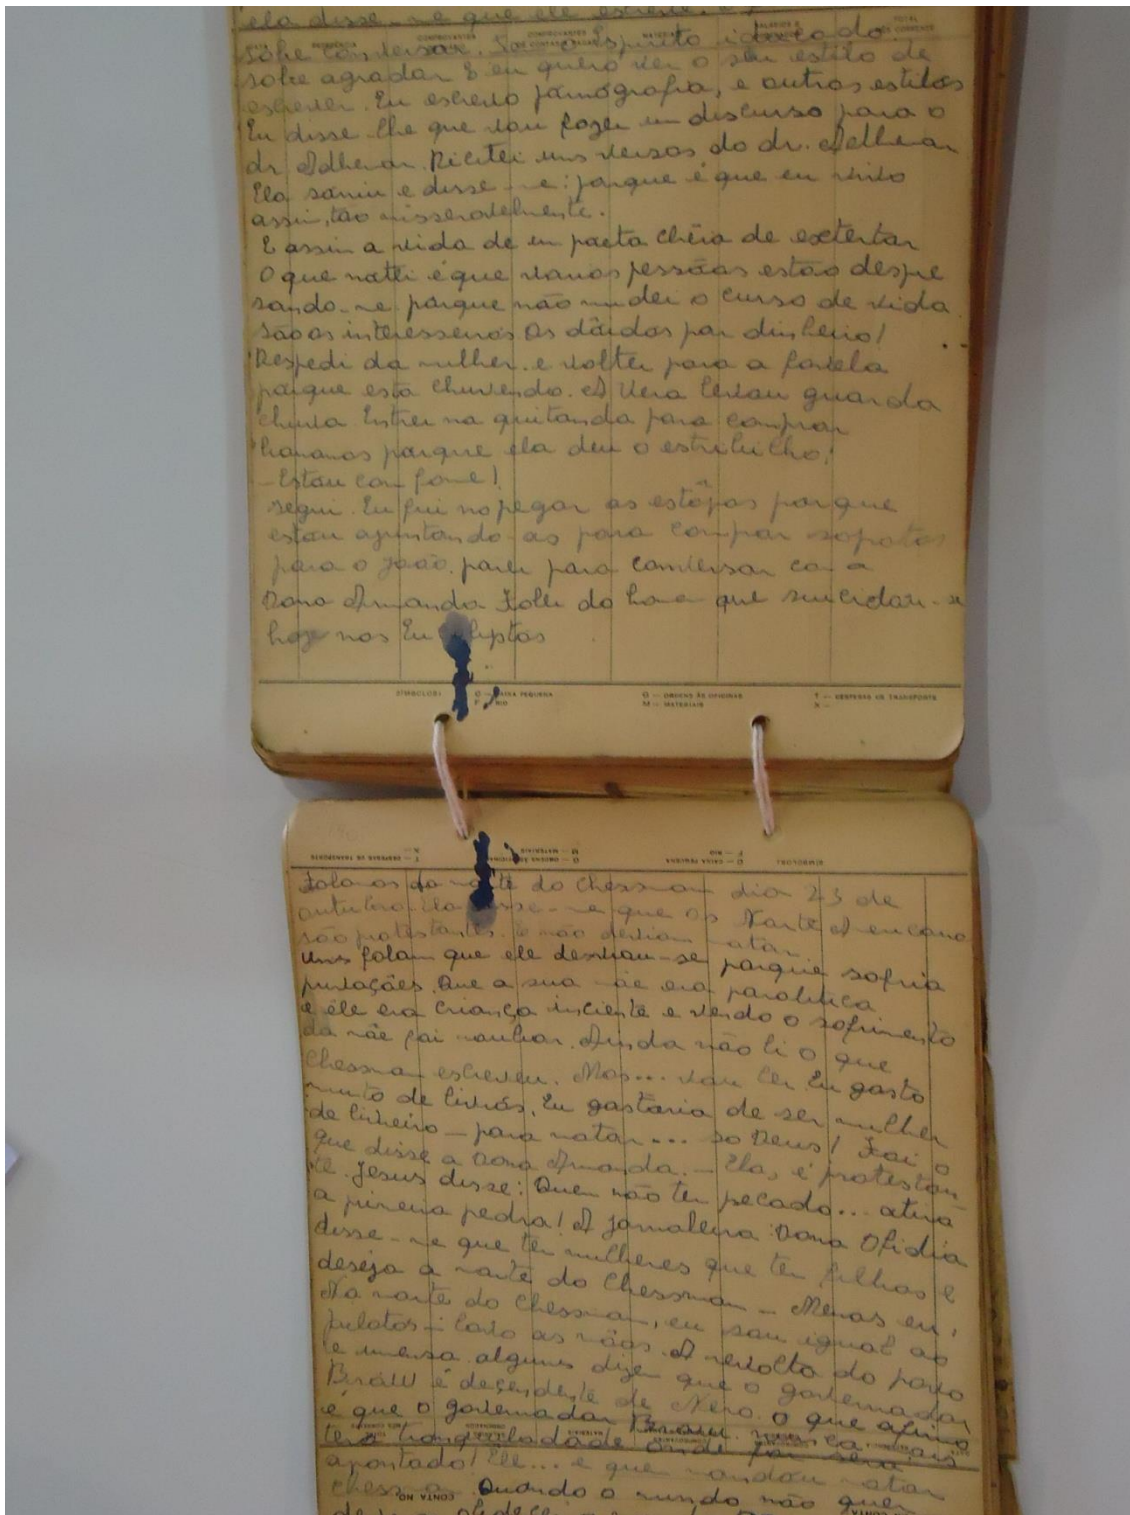 ela disse-me que ele escreve. e
sobe conversar. So o Espirito idoso do
sobe agradar E eu quero ver o seu estilo de
escrever. Eu escrevo pornógrafia, e outros estilos
Eu disse lhe que vou fazer um discurso para o
dr. Adhemar. Recitei uns versos do dr. Adhemar
Ela sorriu e disse-me: porque é que eu vivo
assim, tão misseravelmente.
E assim a vida de um poeta chêia de
O que notei é que varias pessôas estão despre
sando-me porque não mudei o curso de vida.
são os interesseiros os dôidos por dinheiro!
Despedi da mulher. e voltei para a favela
porque esta chuvendo. A Vera levou guarda
chuva. Entrei na quitanda para comprar
bananas porque ela deu o estribilho:
-Estou com fome!
segui. Eu fui no pegar as estôpas porque
estou ajuntando-as para compar sapatos
para o João. parei para conversar com a
Dona Armanda Falei do homem que suicidou-se
hoje nos Eucaliptos
SÍMBOLOS: C — CAIXA PEQUENA O — ORDENS ÀS OFICINAS T — DESPESAS DE TRANSPORTE
F — RIO M — MATERIAIS X —
Falamos da morte do Chessman dia 23 de
outubro. Ela disse-me que os Norte Americano
são protestantes. E não deviam matar.
Uns falam que ele desviou-se porque sofria
privações. Que a sua mãe era paralitica
e êle era criança inciente e vendo o sofrimento
da mãe foi roubar. Ainda não li o que
Chessman escreveu. Mas... vou ler. Eu gosto
muito de livrós. Eu gostaria de ser mulher
de livreiro — para matar... so Deus! Foi o
que disse a Dona Armanda. — Ela, é protestan
te. Jesus disse: Quem não tem pecado... atira
a primeira pedra! A jornaleira Dona Ofidia
disse-me que tem mulheres que tem filhos e
deseja a morte do Chessman — Menas eu,
Na morte do Chessman, eu sou igual ao
pilatos — lavo as mãos. A revolta do povo
e imensa. alguns dizem que o governador
Brôw é decendente de Nero. O que afirmo
é que o governador Brow. nunca mais
terá tranquilidade onde for será
apontado! Ele... é quem mandou matar
chessman. Quando o mundo não quer